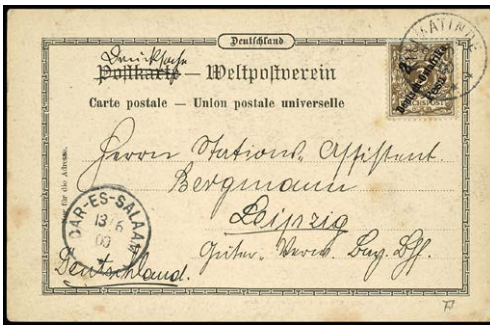 Deutschland
Drucksache
Postkarte — Weltpostverein
Carte postale — Union postale universelle
Nur für die Adresse.
Herrn Stations-Assistent.
Bergmann
Leipzig
Güter-Verw. Bay. Bhf.
Deutschland.
DAR-ES-SALAAM
13/6
00
REICHSPOST